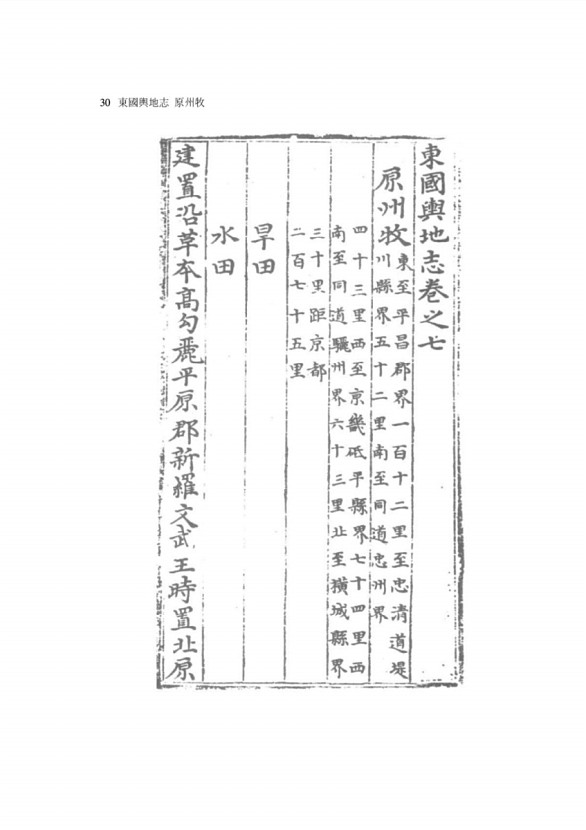 30 東國輿地志 原州牧
東國輿地志卷之七
原州牧
東至平昌郡界一百十二里至忠清道堤
川縣界五十二里南至同道忠州界
四十三里西至京畿砥平縣界七十四里西
南至同道驪州界六十三里北至橫城縣界
三十里距京都
二百七十五里
旱田
水田
建置沿革夲高勾麗平原郡新羅文武王時置北原